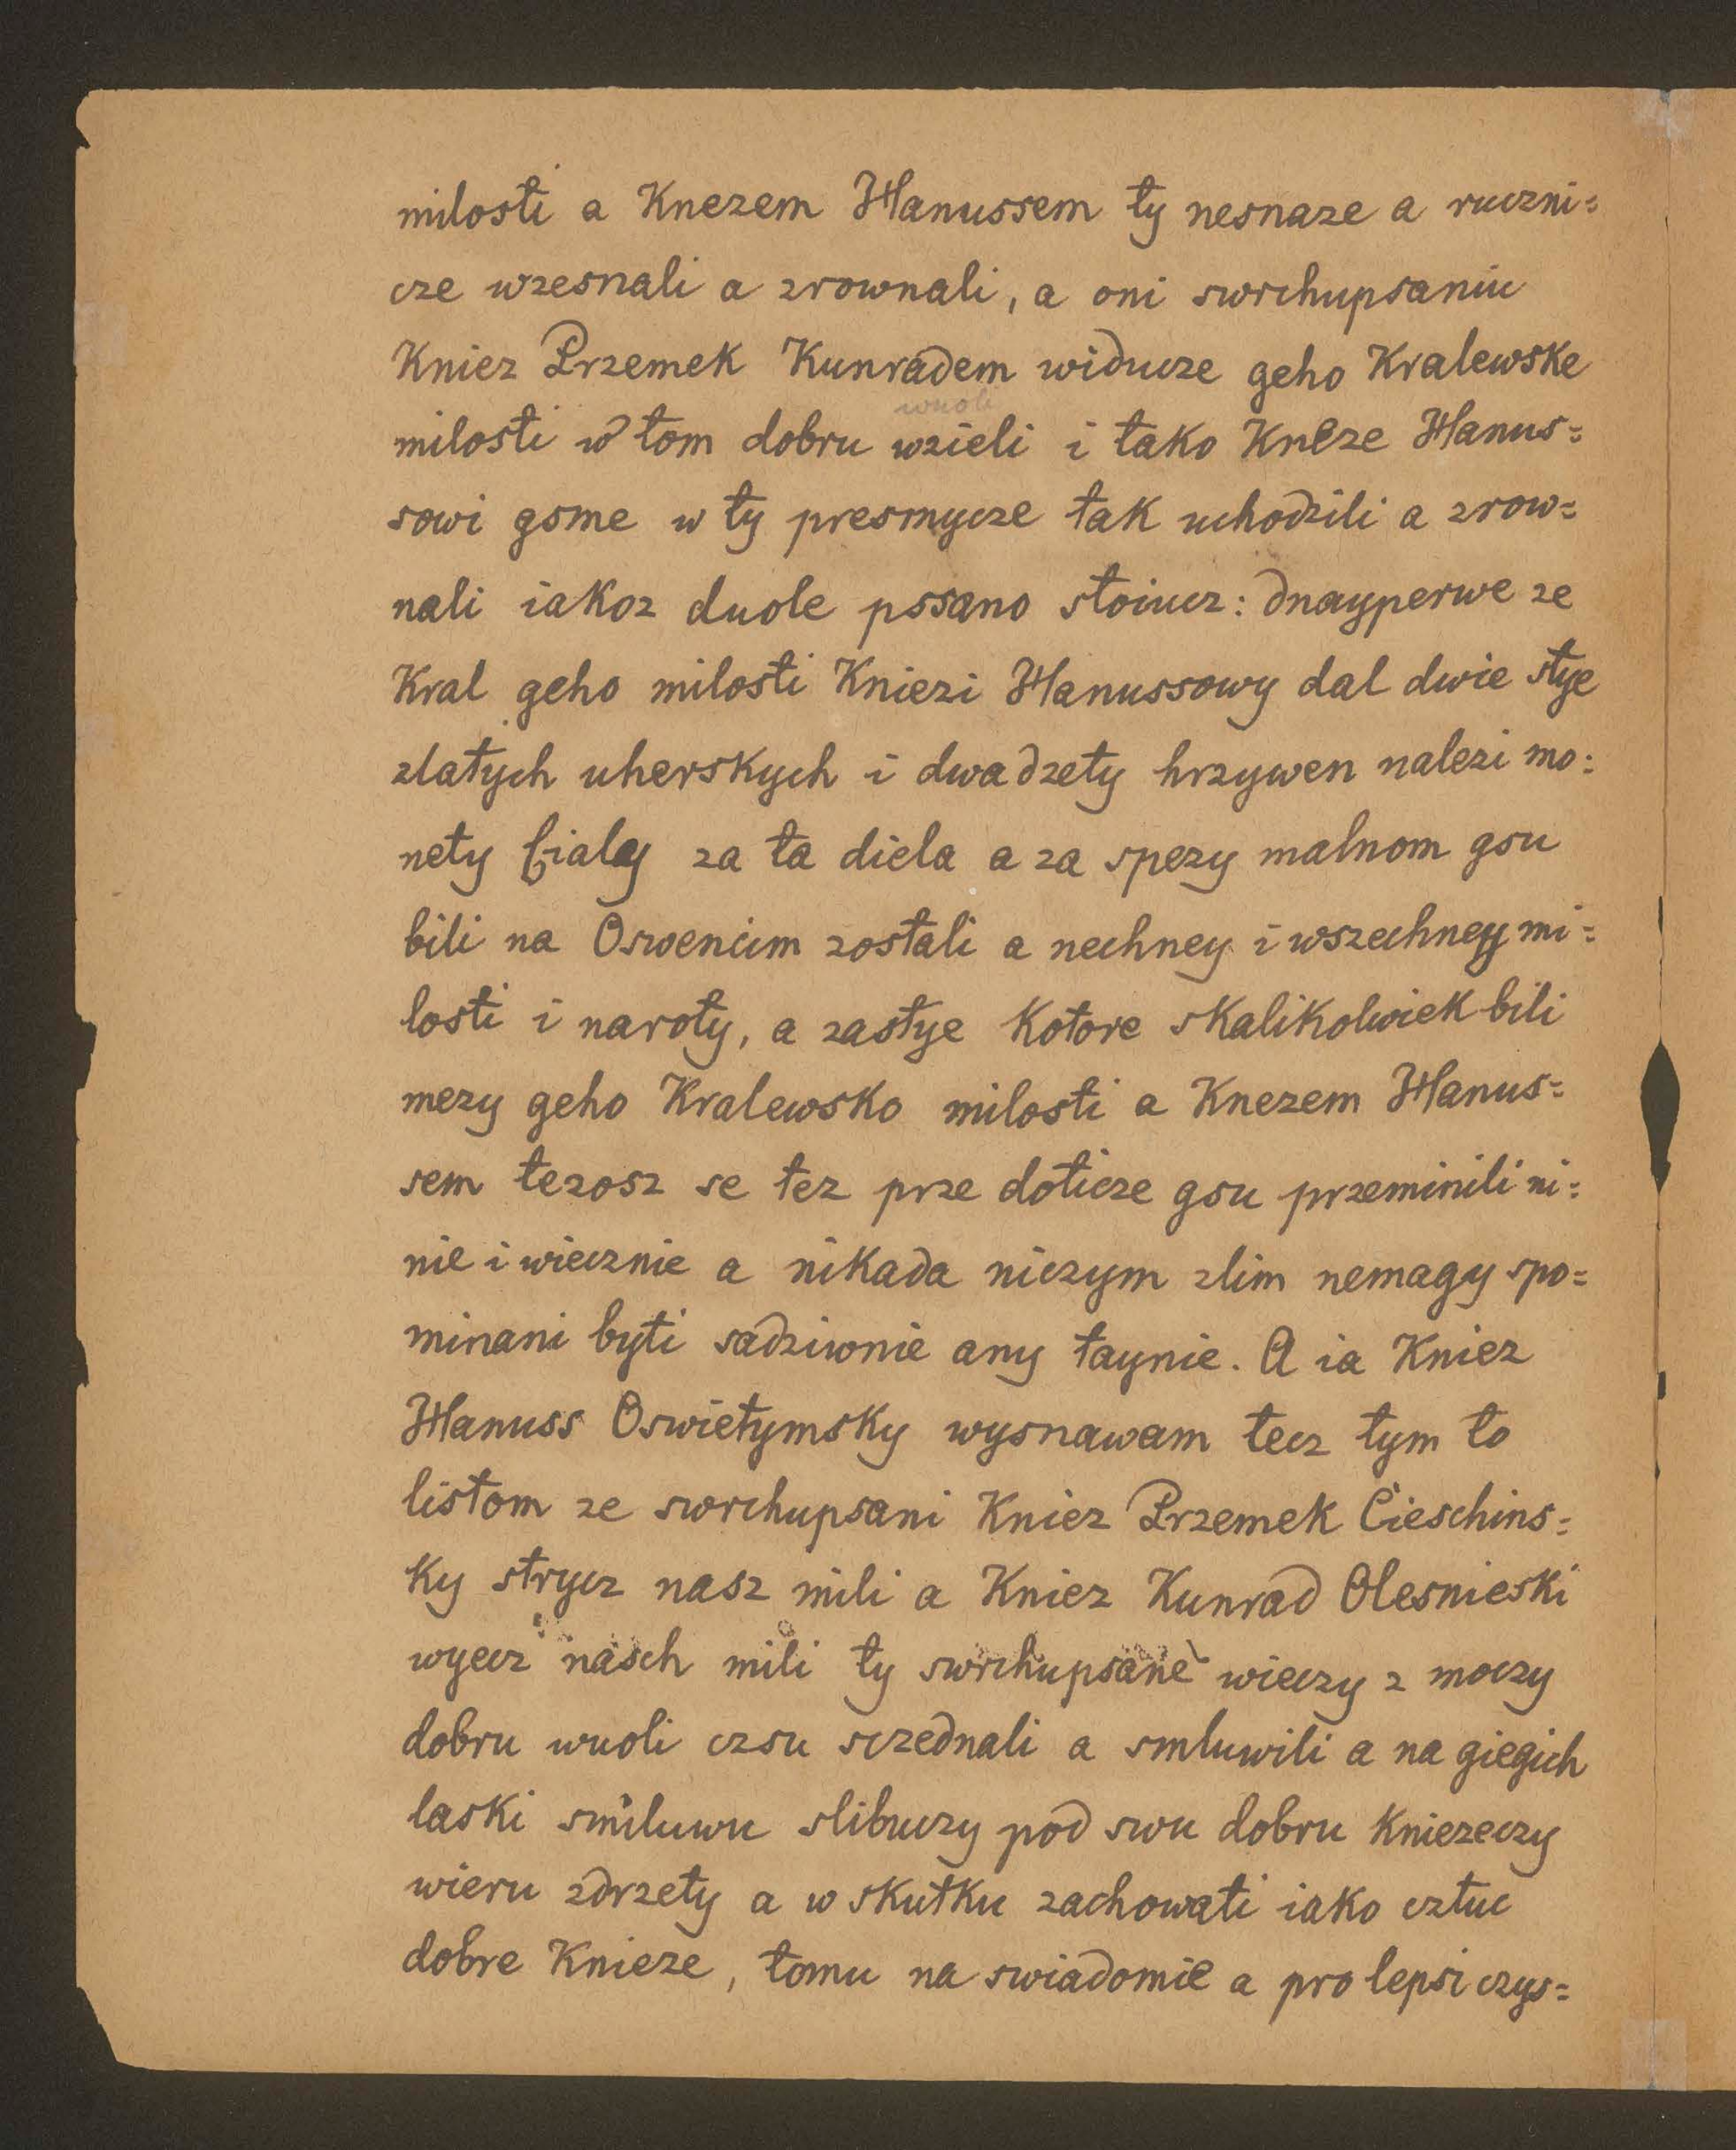 milosti a Knezem Hanussem ty nesnaze a ruczni=
cze wzesnali a zrownali, a oni swrchupsaniu
Kniez Przemek Kunradem widucze geho Kralewske
wuoli
milosti w tom dobru wzieli i tako Kneze Hanus=
sowi gsme w ty presmycze tak uchodzili a zrow=
nali iakoz duole pssano stoiucz: dnayperwe ze
Kral geho milosti Kniezi Hanussowy dal dwie stye
zlatych uherskych i dwadzety hrzywen nalezi mo:
nety bialey za ta diela a za spezy malnom gsu
bili na Oswencim zostali a nechney i wszechney mi=
losti i naroty, a zastye kotore skalikolwiek bili
mezy geho Kralewsko milosti a Knezem Hanus=
sem tezosz se tez prze doticze gsu przeminili ni=
nie i wiecznie a nikada niczym zlim nemagy spo=
minani byti sadziwnie any taynie. A ia Kniez
Hanuss Oswietymsky wysnawam tecz tym to
listom ze swrchupsani Kniez Przemek Cieschins=
ky strycz nasz mili a Kniez Kunrad Olesnieski
wyecz nasch mili ty swrchupsane wieczy z moczy
dobru wuoli czsu sczednali a smluwili a na giegich
laski smluwu slibuczy pod swu dobru kniezeczy
wieru zdrzety a w skutku zachowati iako cztuc
dobre Knieze, tomu na swiadomie a pro lepsi czys=